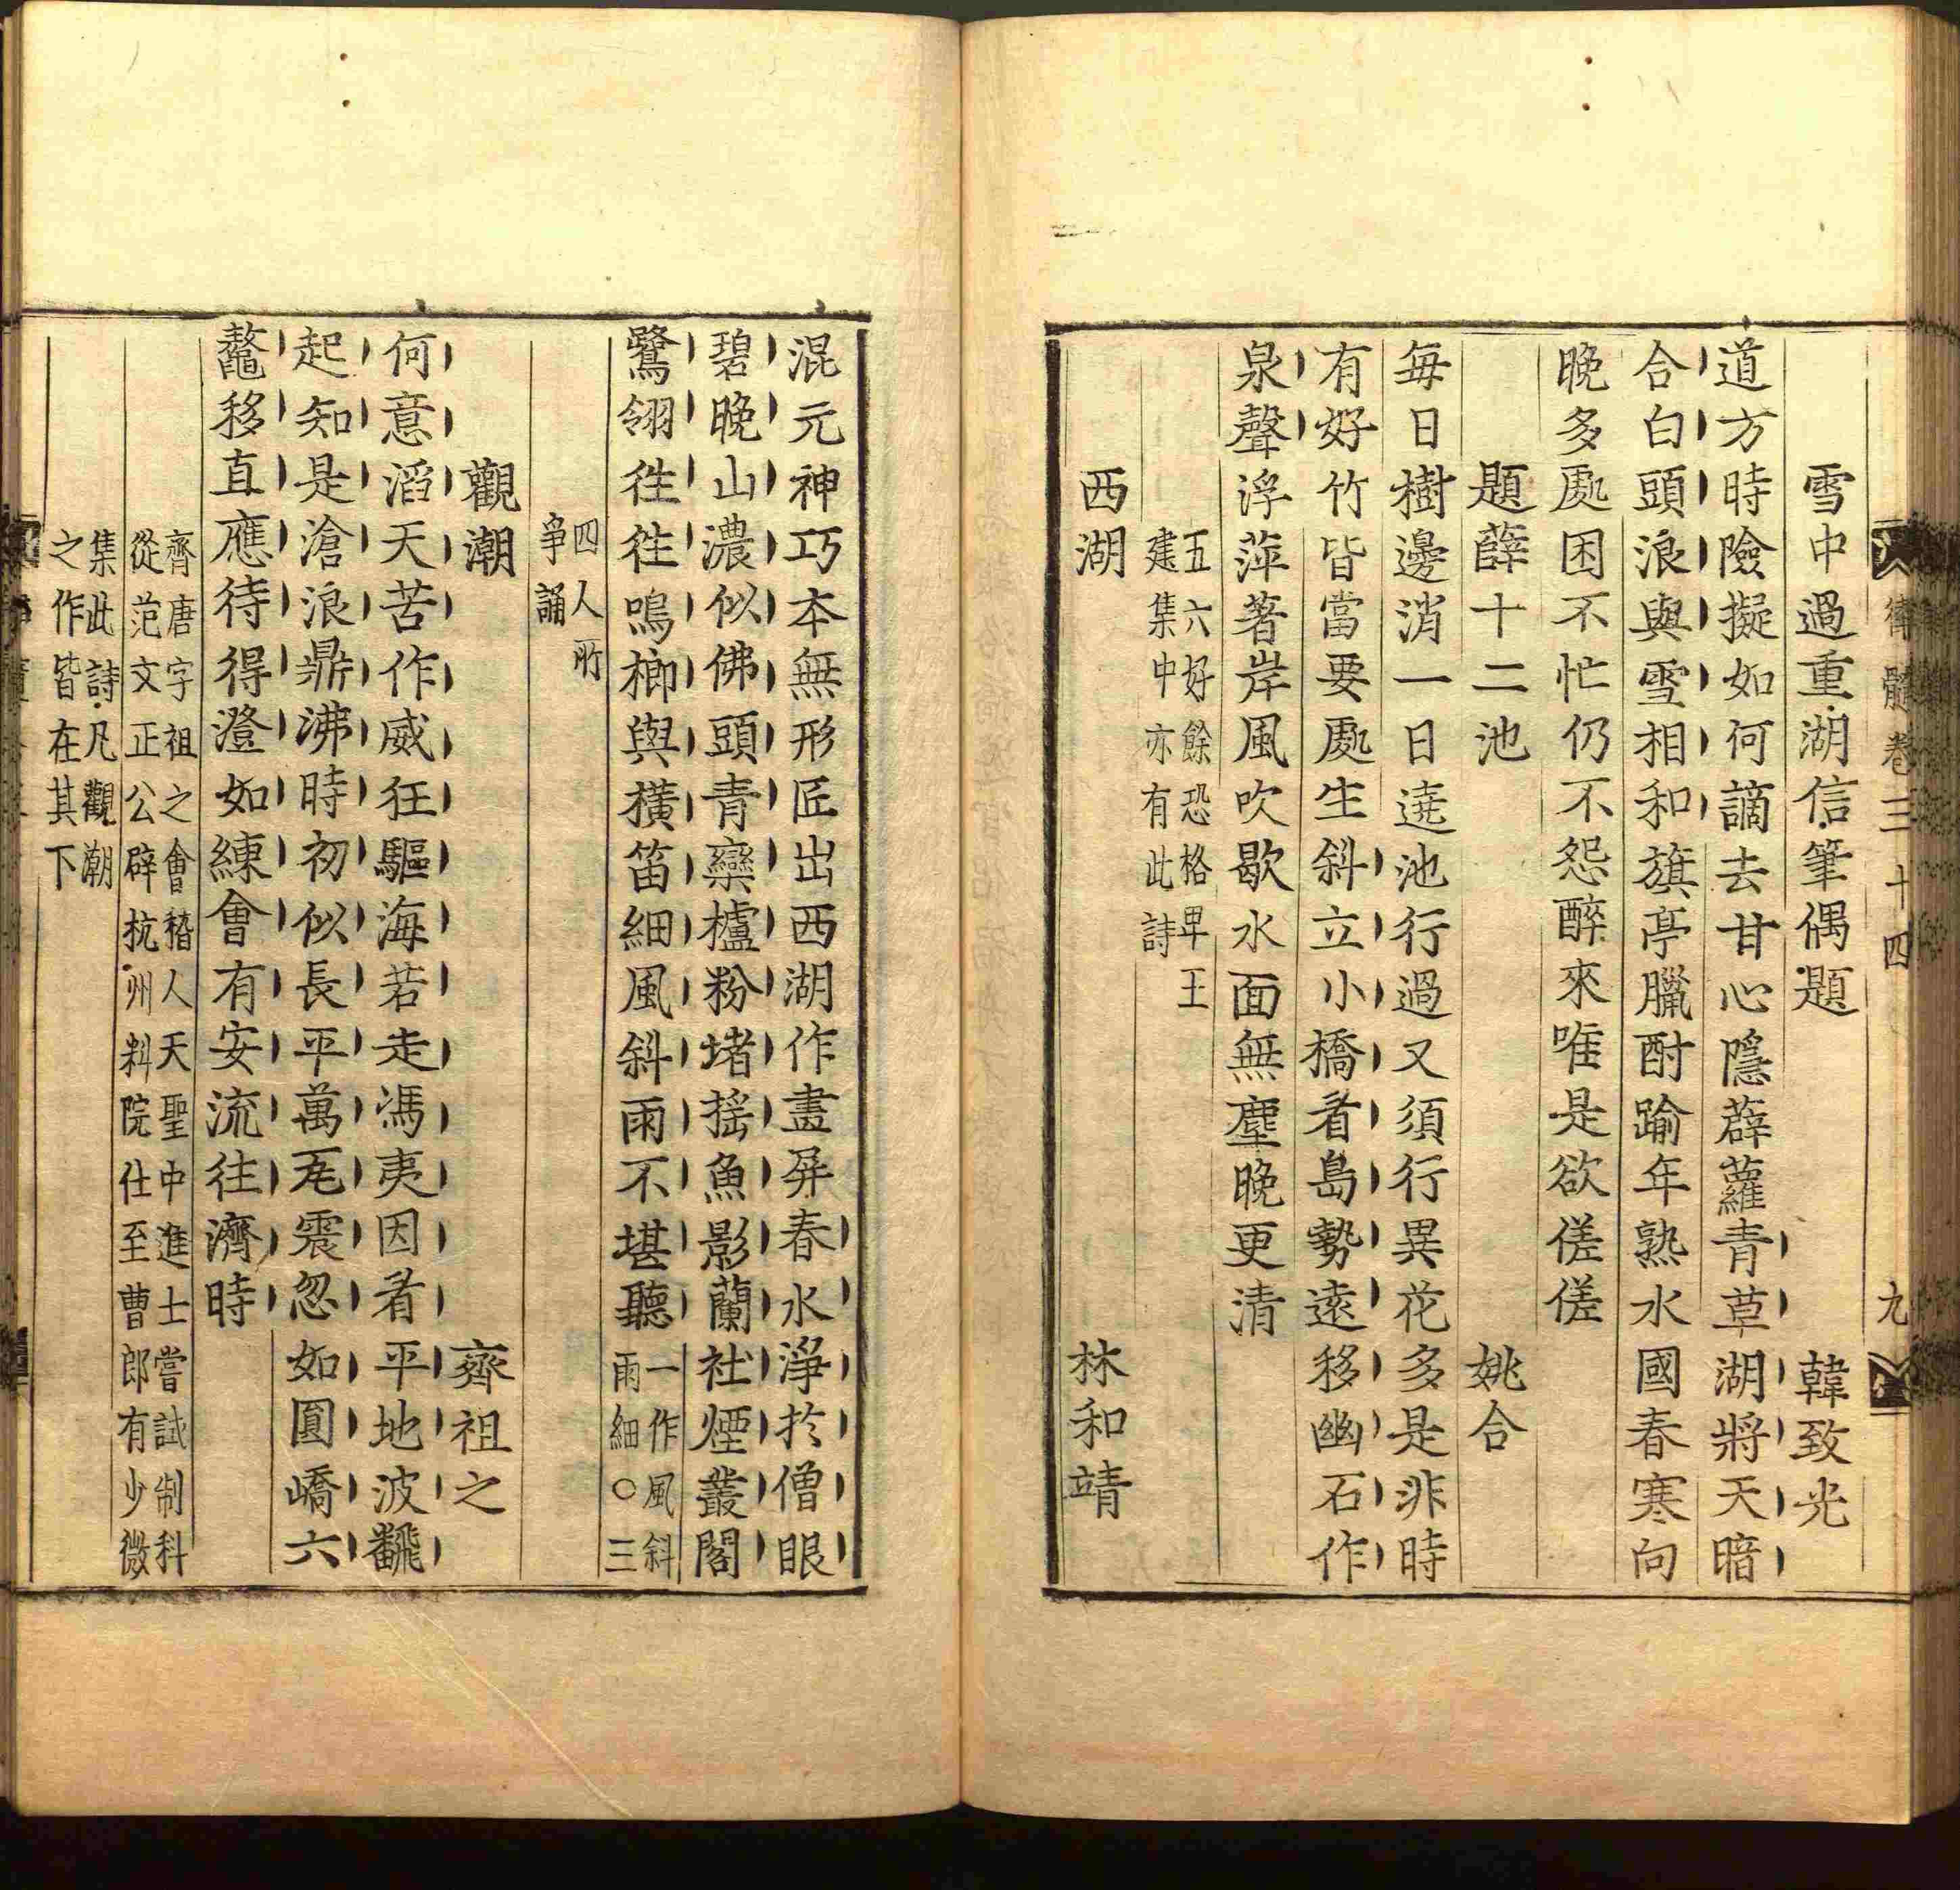 律髓卷三十四 九
雪中過重湖信筆偶題 韓致光
道方時險擬如何謫去甘心隱薜蘿青草湖將天暗
合白頭浪與雪相和旗亭臘酎踰年熟水國春寒向
晚多處困不忙仍不怨醉來唯是欲傞傞
題薛十二池 姚合
每日樹邊消一日遶池行過又須行異花多是非時
有好竹皆當要處生斜立小橋看島勢遠移幽石作
泉聲浮萍著岸風吹歇水面無塵晚更清
五六好餘恐格卑王
建集中亦有此詩
西湖 林和靖
混元神巧本無形匠出西湖作畫屏春水淨扵僧眼
碧晚山濃似佛頭青欒櫨粉堵搖魚影蘭社煙叢閣
鷺翎徃徃鳴榔與橫笛細風斜雨不堪聽
一作風斜
雨細○三
四人所
爭誦
觀潮 齊祖之
何意滔天苦作威狂驅海若走馮夷因看平地波飜
起知是滄浪鼎沸時初似長平萬瓦震忽如圓嶠六
鼇移直應待得澄如練會有安流往濟時
齊唐字祖之會稽人天聖中進士嘗試制科
從范文正公辟杭州料院仕至曹郎有少微
集此詩凡觀潮
之作皆在其下